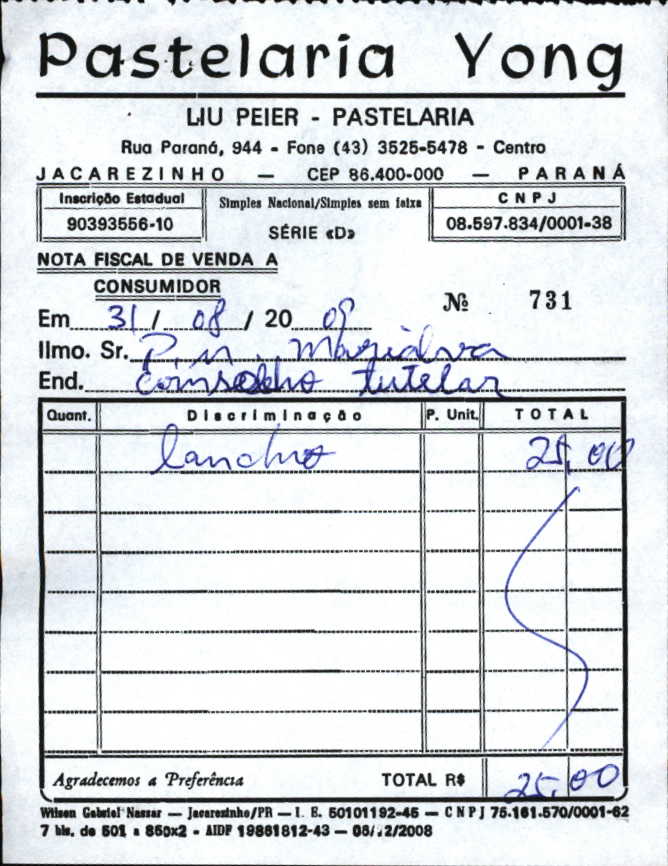 Pastelaria Yong
LIU PEIER - PASTELARIA
Rua Paraná, 944 - Fone (43) 3525-5478 - Centro
JACAREZINHO — CEP 86.400-000 — PARANÁ
Inscrição Estadual
90393556-10
Simples Nacional/Simples sem faixa
SÉRIE «D»
CNPJ
08.597.834/0001-38
NOTA FISCAL DE VENDA A
CONSUMIDOR
Nº 731
Em 31 / 08 / 20 09
Ilmo. Sr. P. M. Marialva
End. Conselho tutelar
Quant. Discriminação P. Unit. TOTAL
lanche 25,00
Agradecemos a Preferência TOTAL R$ 25,00
Wilson Gabriel Nassar — Jacarezinho/PR — I. E. 50101192-45 — CNPJ 75.161.570/0001-62
7 bls. de 501 a 850x2 - AIDF 19861812-43 —